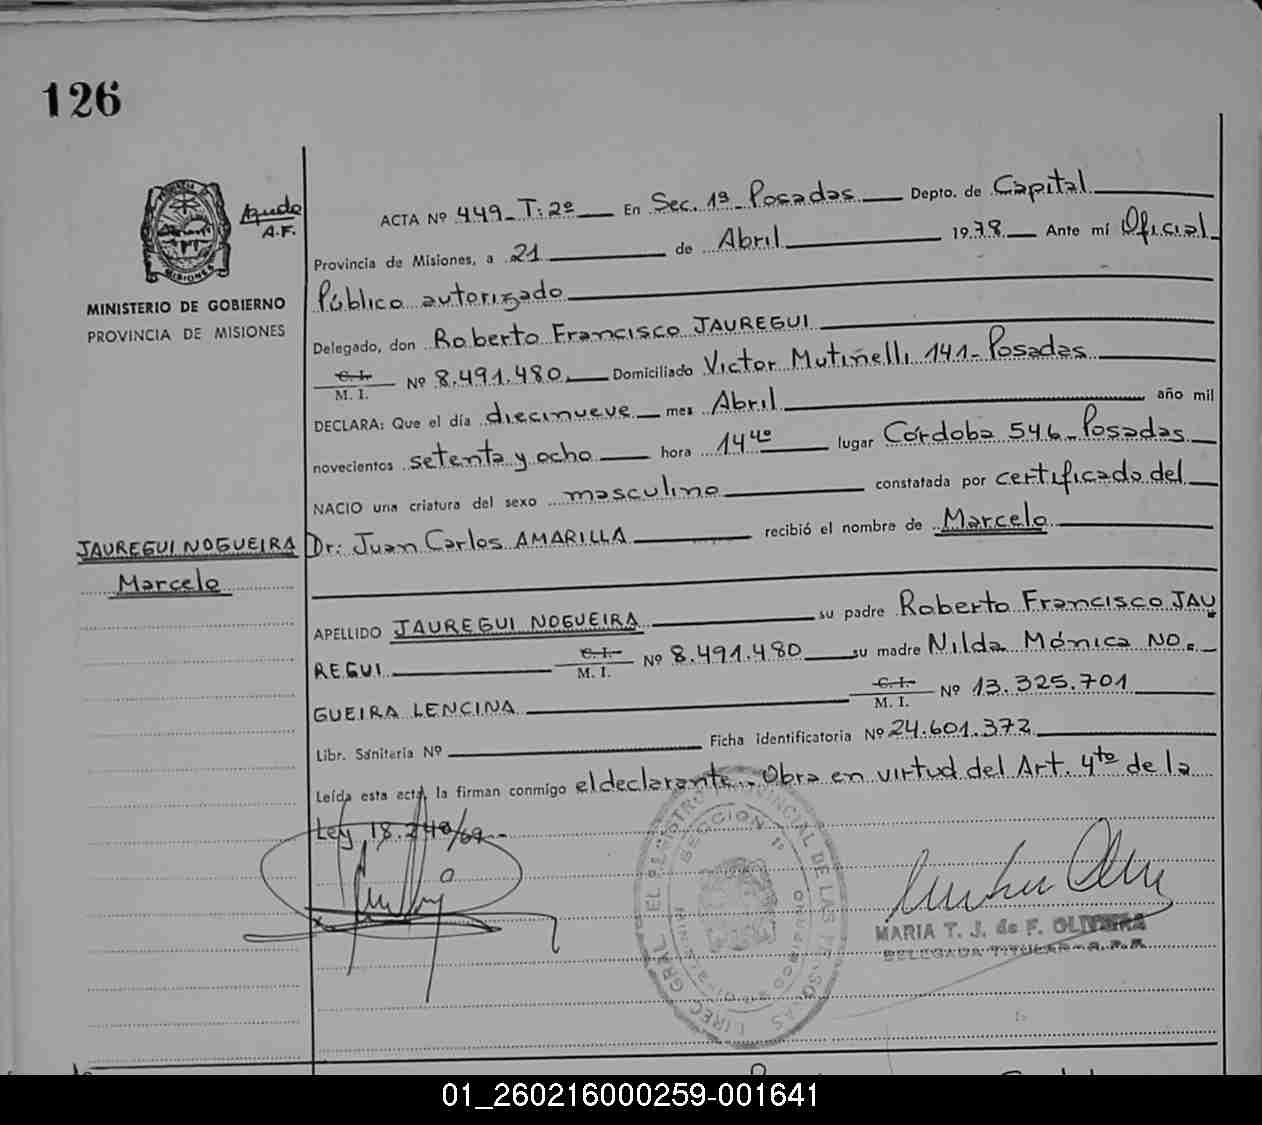 126
Aguda
A.F.
MINISTERIO DE GOBIERNO
PROVINCIA DE MISIONES
ACTA Nº 449_ T: 2º En Sec. 1ª_ Posadas Depto. de Capital
Provincia de Misiones, a 21 de Abril 1978 Ante mí Oficial
Público autorizado
Delegado, don Roberto Francisco JAUREGUI
C. I.
M. I. Nº 8.491.480 Domiciliado Victor Mutinelli 141_ Posadas
DECLARA: Que el día diecinueve mes Abril año mil
novecientos setenta y ocho hora 14 40 lugar Córdoba 546_ Posadas
NACIO una criatura del sexo masculino constatada por certificado del
Dr: Juan Carlos AMARILLA recibió el nombre de Marcelo
JAUREGUI NOGUEIRA
Marcelo
APELLIDO JAUREGUI NOGUEIRA su padre Roberto Francisco JAU
REGUI C. I. M. I. Nº 8.491.480 su madre Nilda Mónica NO.
GUEIRA LENCINA C. I. M. I. Nº 13.325.701
Libr. Sanitaria Nº Ficha identificatoria Nº 24.601.372
Leída esta acta, la firman conmigo el declarante_ Obra en virtud del Art. 4to de la
Ley 18.248/69_
SECCION 1º
MARIA T. J. de F. OLIVEIRA
DELEGADA TITULAR
MISIONES
01_260216000259-001641